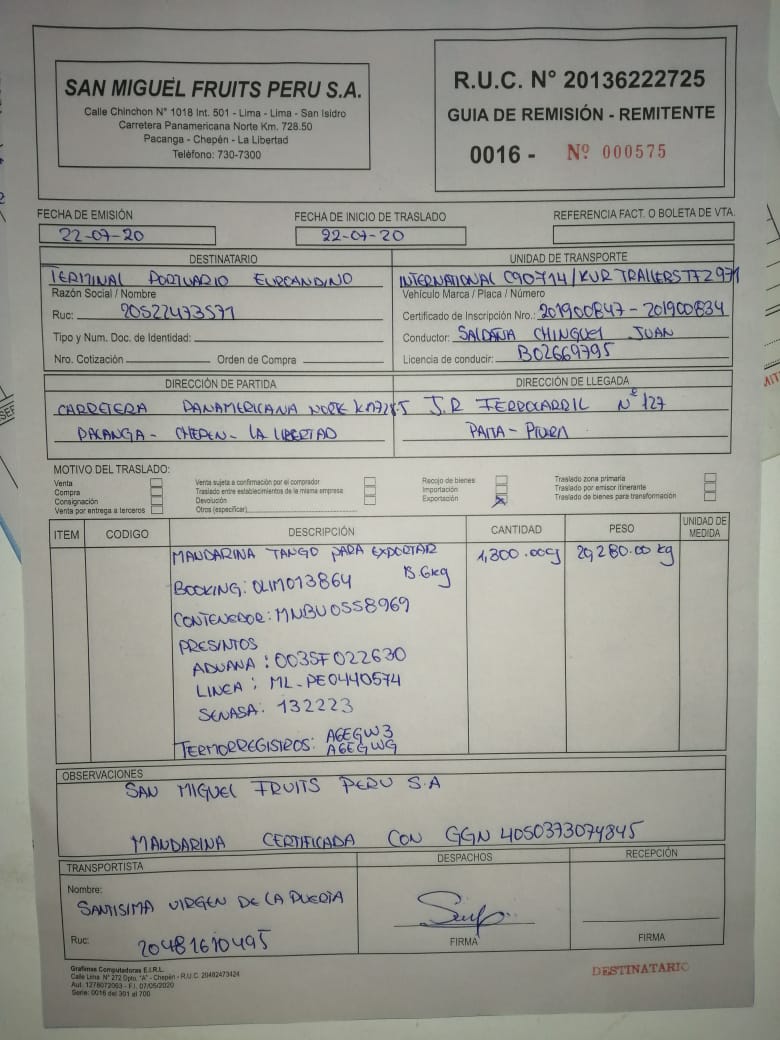 SAN MIGUEL FRUITS PERU S.A.
Calle Chinchon N° 1018 Int. 501 - Lima - Lima - San Isidro
Carretera Panamericana Norte Km. 728.50
Pacanga - Chepén - La Libertad
Teléfono: 730-7300
R.U.C. N° 20136222725
GUIA DE REMISIÓN - REMITENTE
0016 - Nº 000575
FECHA DE EMISIÓN
22-07-20
FECHA DE INICIO DE TRASLADO
22-07-20
REFERENCIA FACT. O BOLETA DE VTA.
DESTINATARIO
TERMINAL PORTUARIO EUROANDINO
Razón Social / Nombre
Ruc: 20522473571
Tipo y Num. Doc. de Identidad:
Nro. Cotización Orden de Compra
UNIDAD DE TRANSPORTE
INTERNATIONAL C9O714/KUR TRAILERS TFZ971
Vehículo Marca / Placa / Número
Certificado de Inscripción Nro.: 201900847 - 201900834
Conductor: SALDAÑA CHINGUEL JUAN
Licencia de conducir: B02669795
DIRECCIÓN DE PARTIDA
CARRETERA PANAMERICANA NORTE KM728.5
PACANGA - CHEPEN - LA LIBERTAD
DIRECCIÓN DE LLEGADA
J.R FERROCARRIL Nº 127
PAITA - PIURA
MOTIVO DEL TRASLADO:
Venta
Compra
Consignación
Venta por entrega a terceros
Venta sujeta a confirmación por el comprador
Traslado entre establecimientos de la misma empresa
Devolución
Otros (especificar)
Recojo de bienes
Importación
Exportación X
Traslado zona primaria
Traslado por emisor itinerante
Traslado de bienes para transformación
ITEM CODIGO DESCRIPCIÓN CANTIDAD PESO UNIDAD DE MEDIDA
MANDARINA TANGO PARA EXPORTAR 1,300.00 20,280.00 kg
15.6kg
BOOKING: OLIM013864
CONTENEDOR: MNBU0558969
PRESINTOS
ADUANA: 003SF022630
LINEA: ML-PE0440574
SENASA: 132223
TERMORREGISTROS: A6EGW3
A6EGWG
OBSERVACIONES
SAN MIGUEL FRUITS PERU S.A
MANDARINA CERTIFICADA CON GGN 4050373074845
TRANSPORTISTA
Nombre:
SANTISIMA VIRGEN DE LA PUERTA
Ruc: 20481610495
DESPACHOS
FIRMA
RECEPCIÓN
FIRMA
Grafimas Computadoras E.I.R.L.
Calle Lima N° 272 Dpto. "A" - Chepén - R.U.C. 20482473424
Aut. 1278072063 - F.I. 07/05/2020
Serie: 0016 del 301 al 700
DESTINATARIO